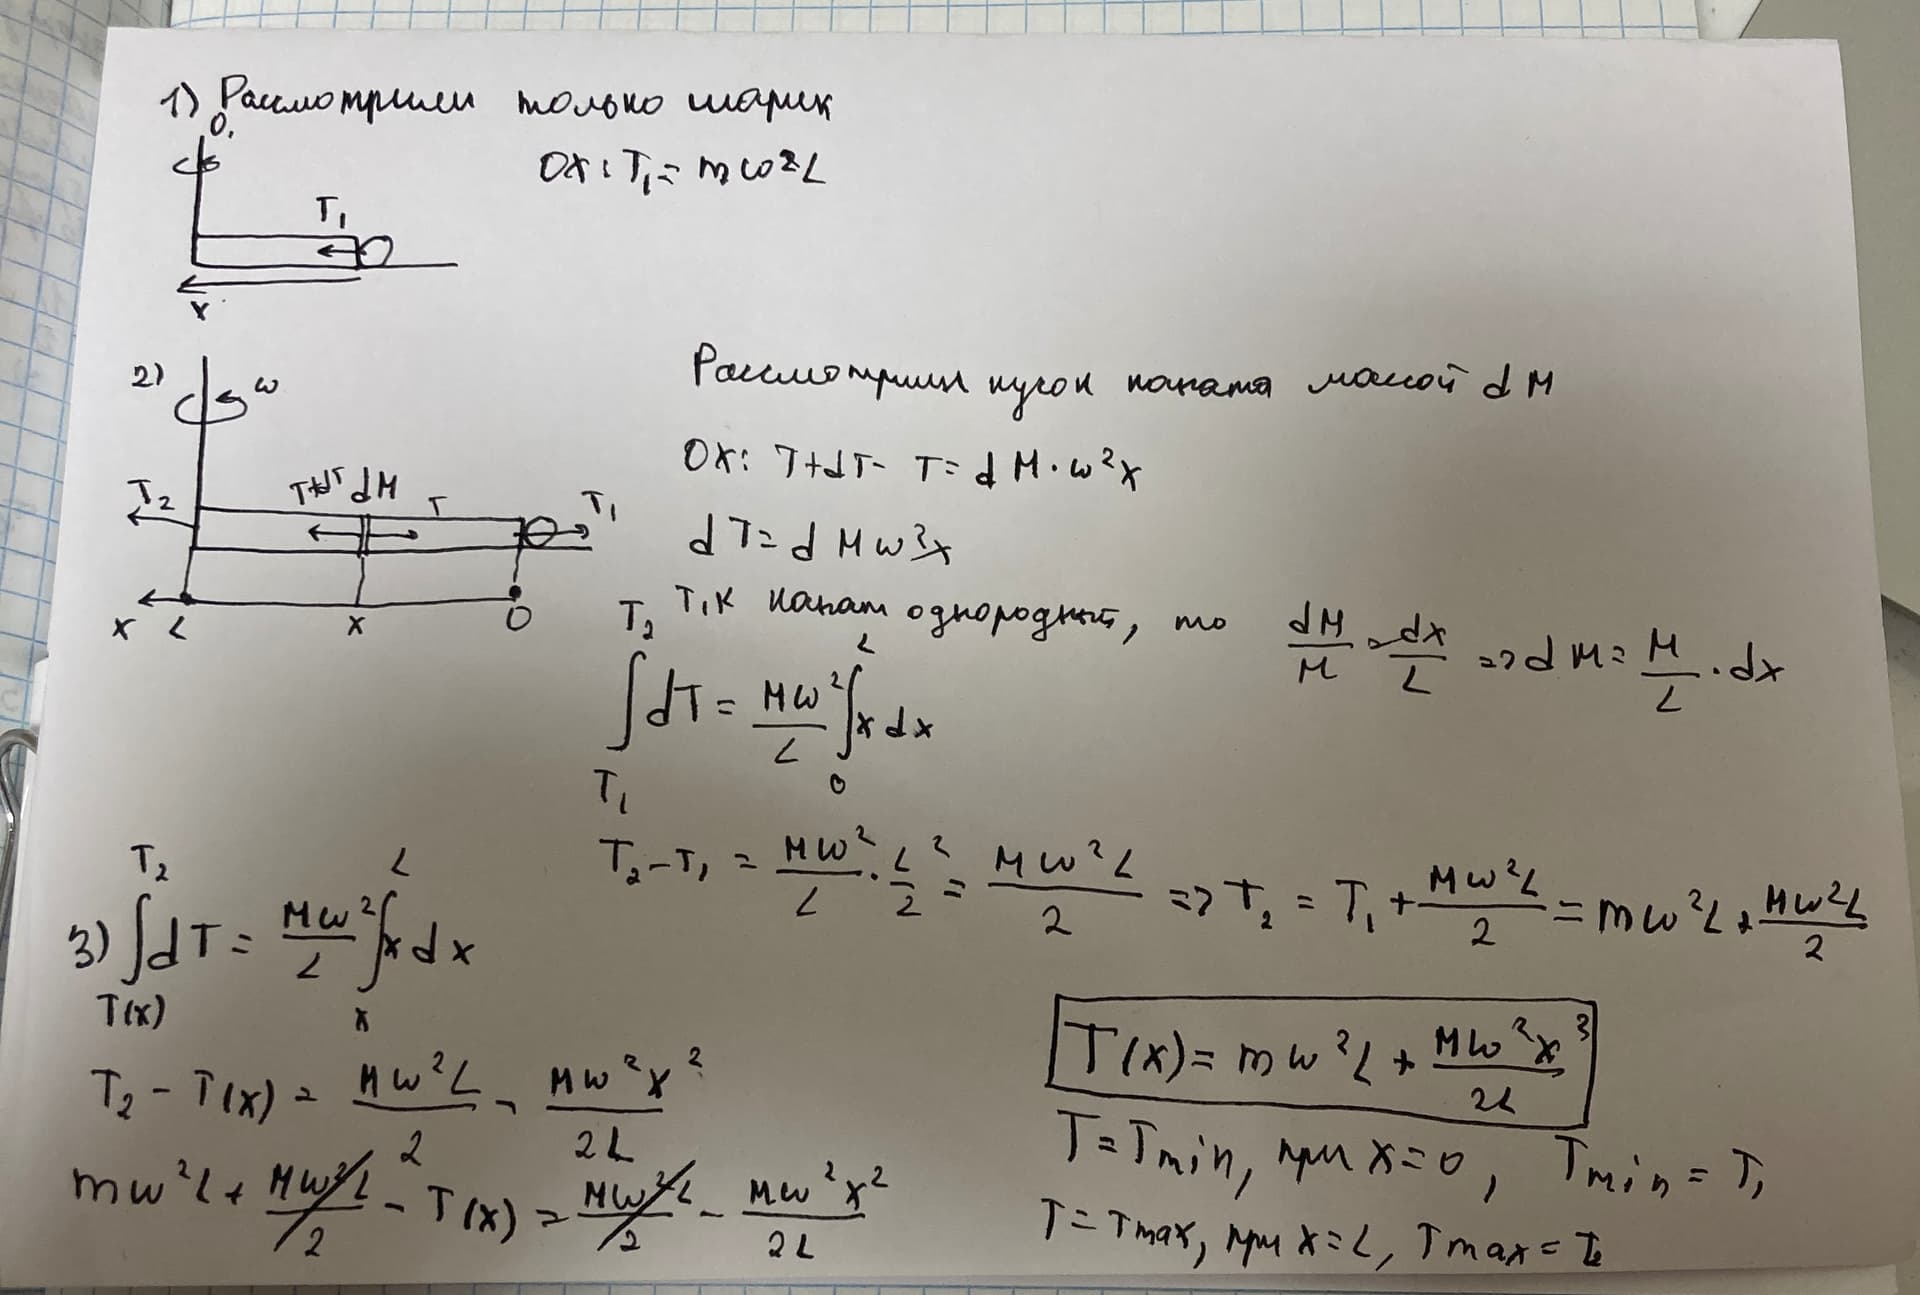 1) Рассмотрим только шарик
O₁
OX: T₁ = mω²L
T₁
x
2)
ω
Рассмотрим кусок каната массой dM
OX: T+dT- T= dM·ω²x
T₂
T+dT dM T
T₁
dT= dMω²x
x L x O
Т.к канат однородный, то dM/M = dx/L => dM = M/L · dx
∫_{T₁}^{T₂} dT = Mω²/L ∫_0^L x dx
T₂-T₁ = Mω²/L · L²/2 = Mω²L/2 => T₂ = T₁ + Mω²L/2 = mω²L + Mω²L/2
3) ∫_{T(x)}^{T₂} dT = Mω²/L ∫_x^L x dx
T₂ - T(x) = Mω²L/2 - Mω²x²/2L
mω²L + Mω²L/2 - T(x) = Mω²L/2 - Mω²x²/2L
T(x) = mω²L + Mω²x²/2L
T = Tmin, при x=0, Tmin = T₁
T = Tmax, при x=L, Tmax = T₂